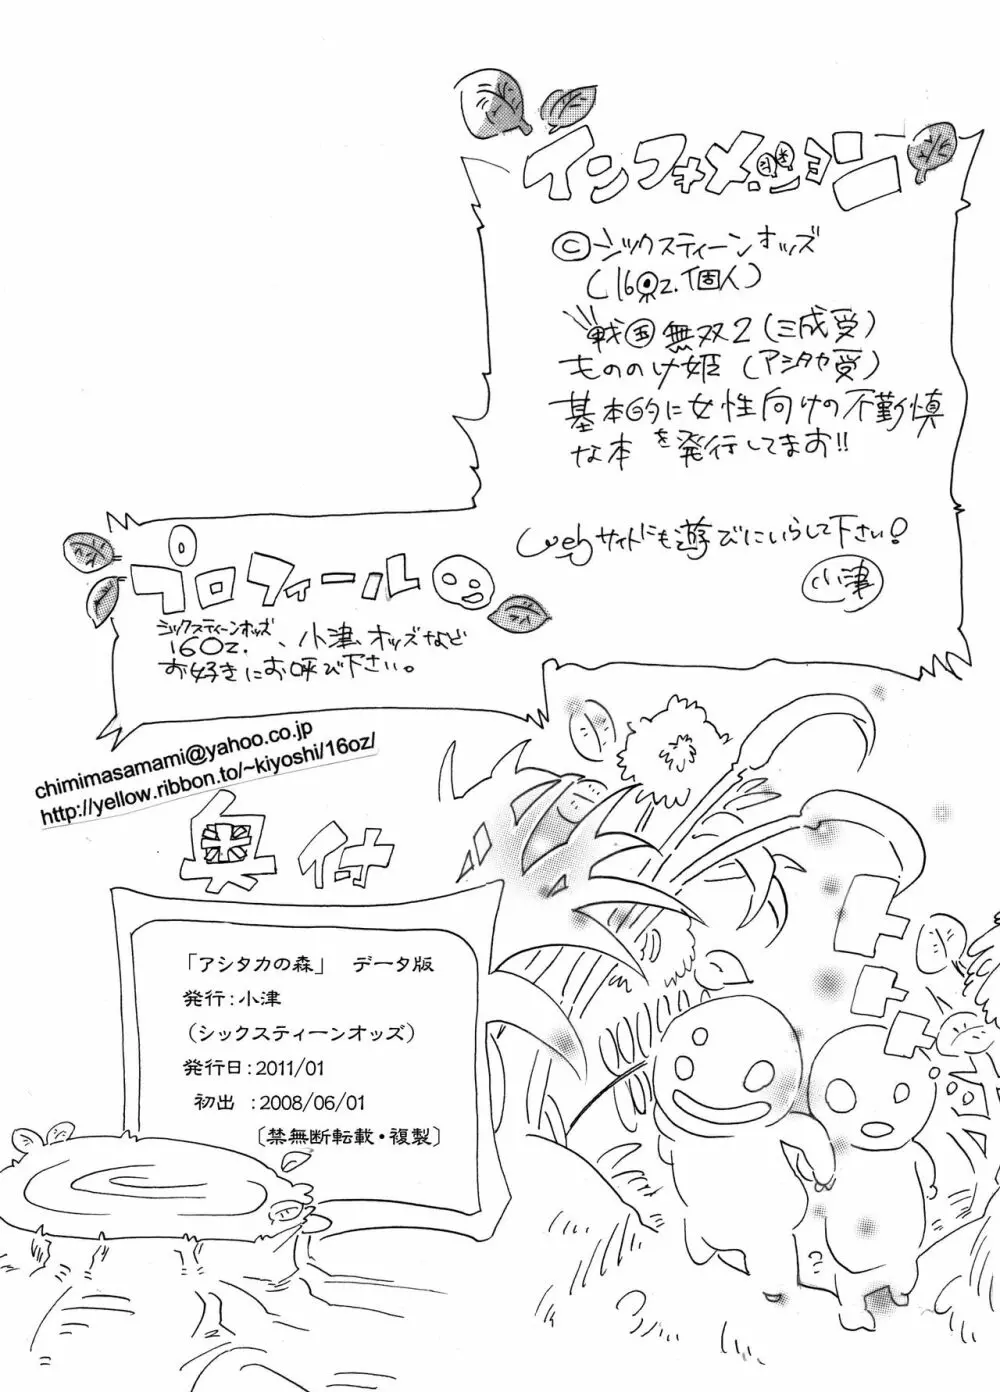 インフォメーション
©シックスティーンオッズ
(16oz.個人)
戦国無双2(三成受)
もののけ姫(アシタカ受)
基本的に女性向けの不謹慎
な本を発行してます!!
webサイトにも遊びにいらして下さい!
小津
プロフィール
シックスティーンオッズ
16oz.、小津、オッズなど
お好きにお呼び下さい。
chimimasamami@yahoo.co.jp
http://yellow.ribbon.to/~kiyoshi/16oz/
奥付
「アシタカの森」 データ版
発行:小津
(シックスティーンオッズ)
発行日:2011/01
初出 :2008/06/01
〔禁無断転載・複製〕